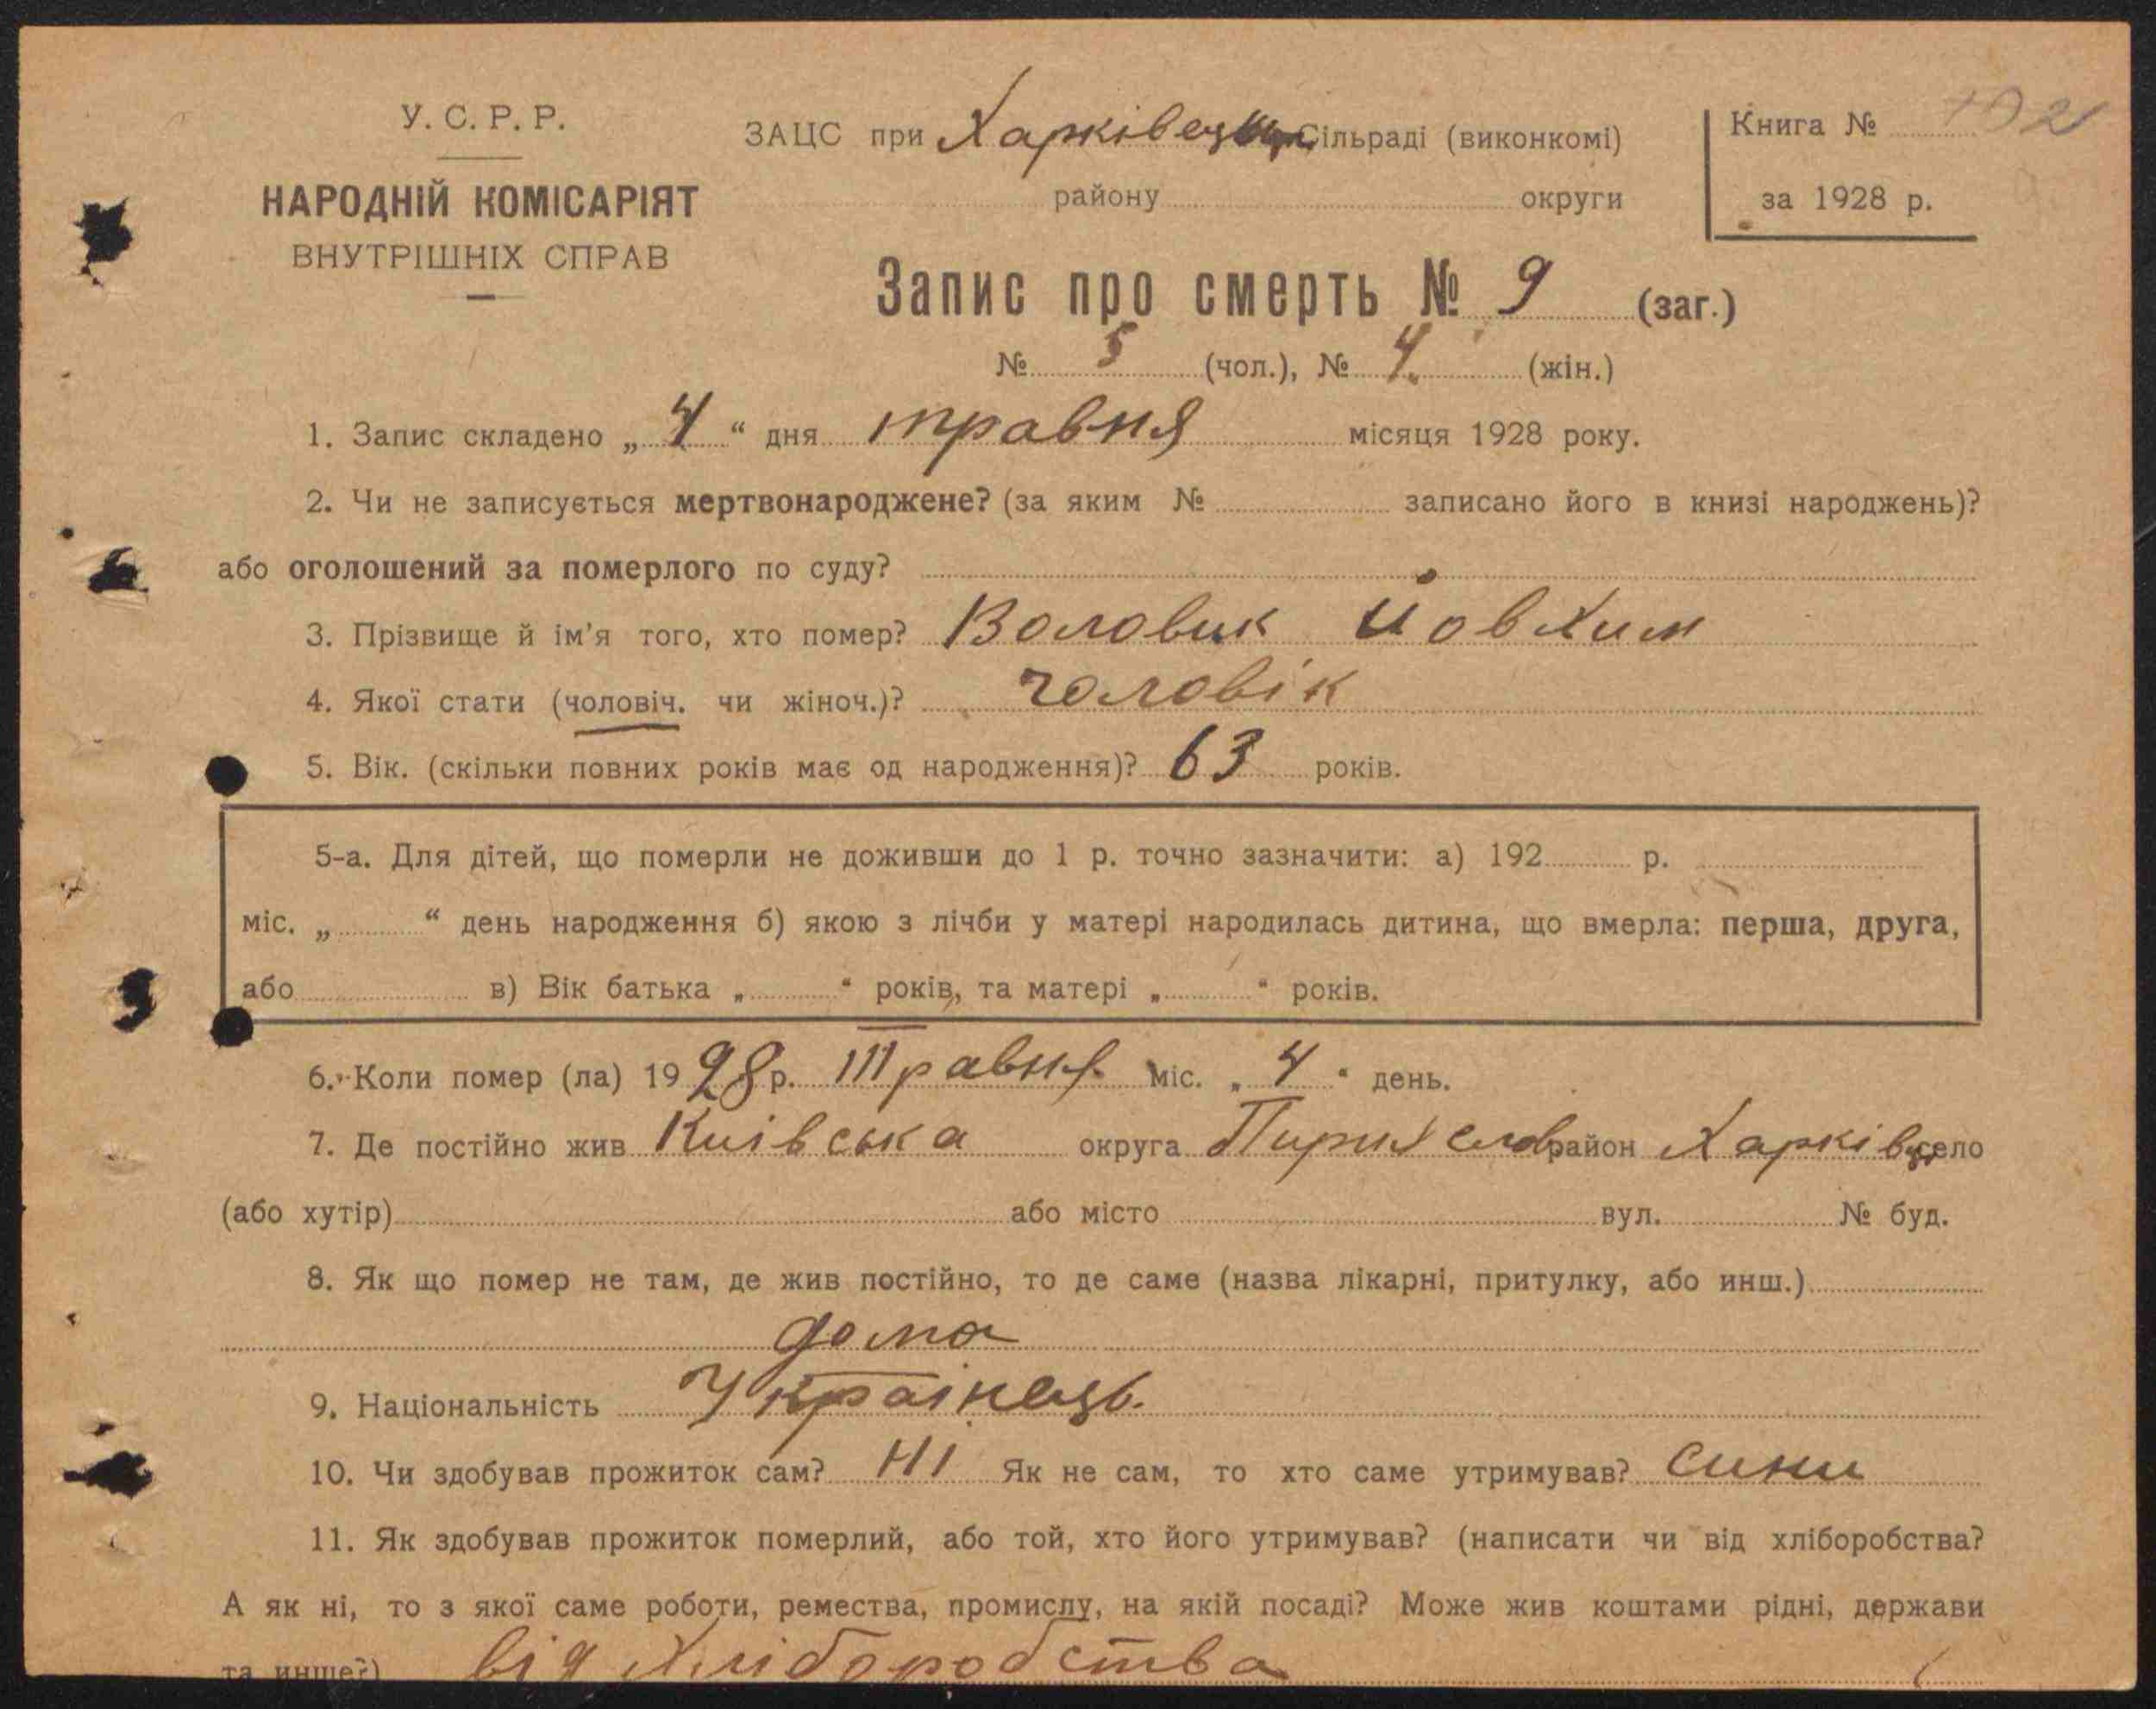 У. С. Р. Р.
НАРОДНІЙ КОМІСАРІЯТ
ВНУТРІШНІХ СПРАВ
ЗАЦС при Харківецькій Сільраді (виконкомі)
району округи
Книга № 102
за 1928 р.
Запис про смерть № 9 (заг.)
№ 5 (чол.), № 4. (жін.)
1. Запис складено „ 4 “ дня травня місяця 1928 року.
2. Чи не записується мертвонароджене? (за яким № записано його в книзі народжень)?
або оголошений за померлого по суду?
3. Прізвище й ім’я того, хто помер? Воловик Йовхим
4. Якої стати (чоловіч. чи жіноч.)? чоловік
5. Вік. (скільки повних років має од народження)? 63 років.
5-а. Для дітей, що померли не доживши до 1 р. точно зазначити: а) 192 р.
міс. „ “ день народження б) якою з лічби у матері народилась дитина, що вмерла: перша, друга,
або в) Вік батька „ “ років, та матері „ “ років.
6. Коли помер (ла) 1928 р. Травня міс. „ 4 “ день.
7. Де постійно жив Київська округа район Харківці село
(або хутір) або місто вул. № буд.
8. Як що помер не там, де жив постійно, то де саме (назва лікарні, притулку, або инш.)
дома
9. Національність Українець.
10. Чи здобував прожиток сам? Ні Як не сам, то хто саме утримував? Сини
11. Як здобував прожиток померлий, або той, хто його утримував? (написати чи від хліборобства?
А як ні, то з якої саме роботи, ремества, промислу, на якій посаді? Може жив коштами рідні, держави
та инше?) від хліборобства